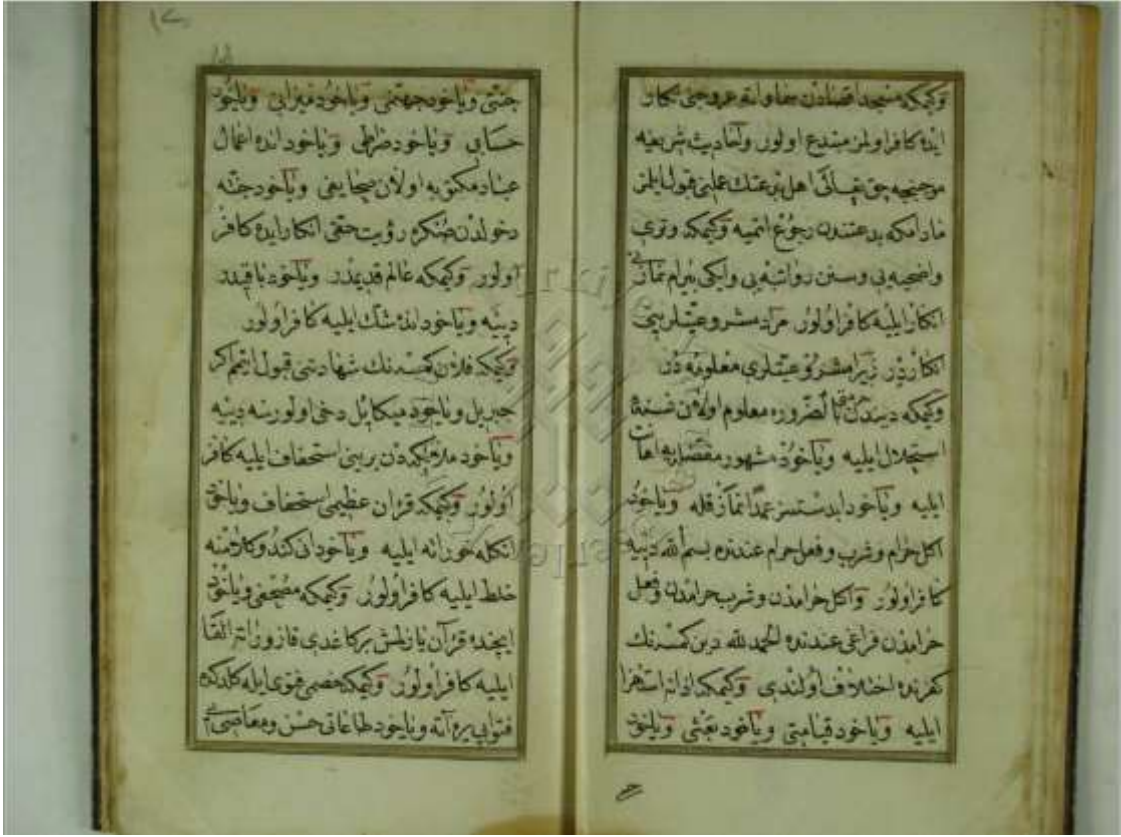 وكيمكه مسجد اقصادن سماواته عروجنى انكار
ايده كافر اولمز مبتدع اولور واحاديث شريفه
موجبنجه حق تعالى اهل بدعتك عملنى قبول ايلمز
مادامكه بدعتندن رجوع ايتميه وكيمكه وترى
واضحيه يى وسنن رواتبه يى وايكى بيرام نمازنى
انكار ايليه كافر اولور مراد مشروعيتلرينى
انكاردر زيرا مشروعيتلرى معلومه در
وكيمكه ديندن بالضروره معلوم اولان نسنه
استحلال ايليه وياخود مشهور اهانت
ايليه وياخود ابدستسز عمدا نماز قله وياخود
اكل حرام وشرب وفعل حرام عندنده بسم الله دييه
كافر اولور واكل حرامدن وشرب حرامدن وفعل
حرامدن فراغى عندنده الحمد لله دين كمسنك
كفرنده اختلاف اولندى وكيمكه اذانه استهزا
ايليه وياخود قيامتى وياخود بعثى وياخود
جنتى وياخود جهنمى وياخود ميزانى وياخود
حسابى وياخود صراطى وياخود انده اعمال
عباد مكتوبه اولان صحايفى وياخود جنته
دخولدن صكره رؤيت حقى انكار ايده كافر
اولور وكيمكه عالم قديمدر وياخود باقيدر
دييه وياخود انده شك ايليه كافر اولور
وكيمكه فلان كمسه نك شهادتنى قبول ايتمم اكر
جبريل وياخود ميكائيل دخى اولورسه دييه
وياخود ملائكه دن برينى استخفاف ايليه كافر
اولور وكيمكه قران عظيمى استخفاف وياخود
انكله ايليه وياخود انى كندو كلامنه
خلط ايليه كافر اولور وكيمكه مصحفى وياخود
ايچنده قرآن يازلمش بر كاغدى قازوراته القا
ايليه كافر اولور وكيمكه خصمى فتوى ايله كلدكده
فتوايى يره آته وياخود طاعاتى حسن ومعاصى